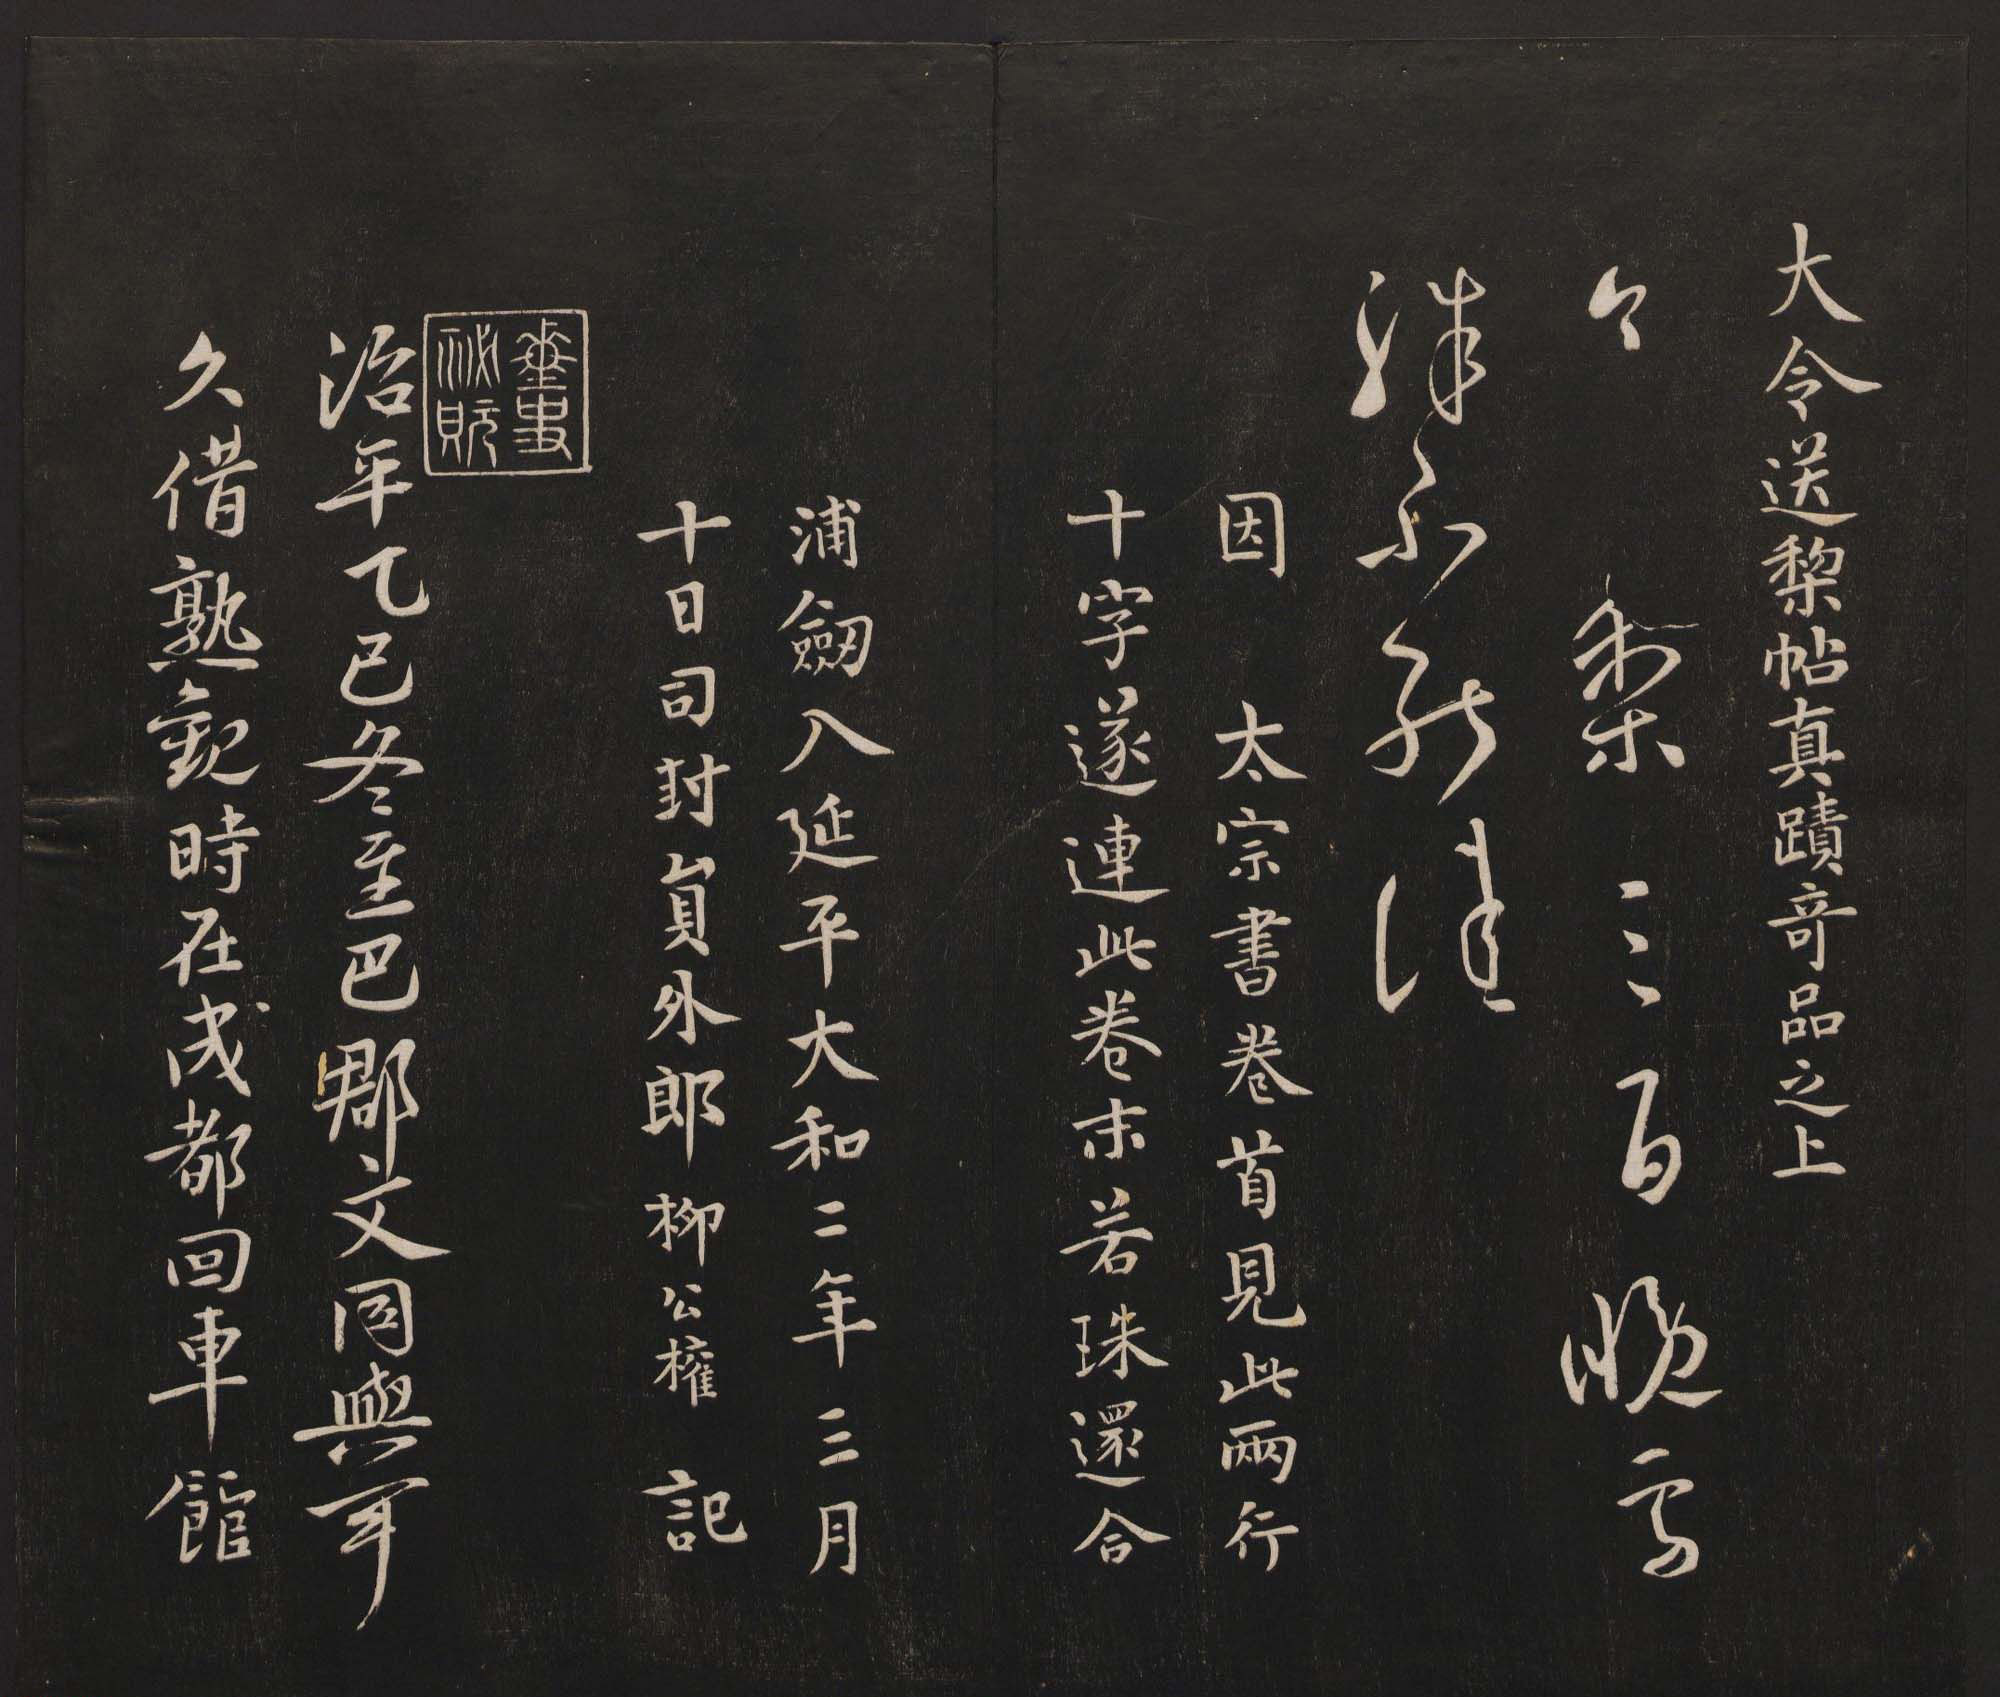 大令送棃帖真蹟奇品之上
今 梨三百晚雪
殊不能佳
因 太宗書卷首見此兩行
十字遂連此卷末若珠還合
浦劒入延平大和二年三月
十日司封負外郎柳公權 記
治平乙巳冬至巴郡文同與可
久借熟觀時在成都回車館